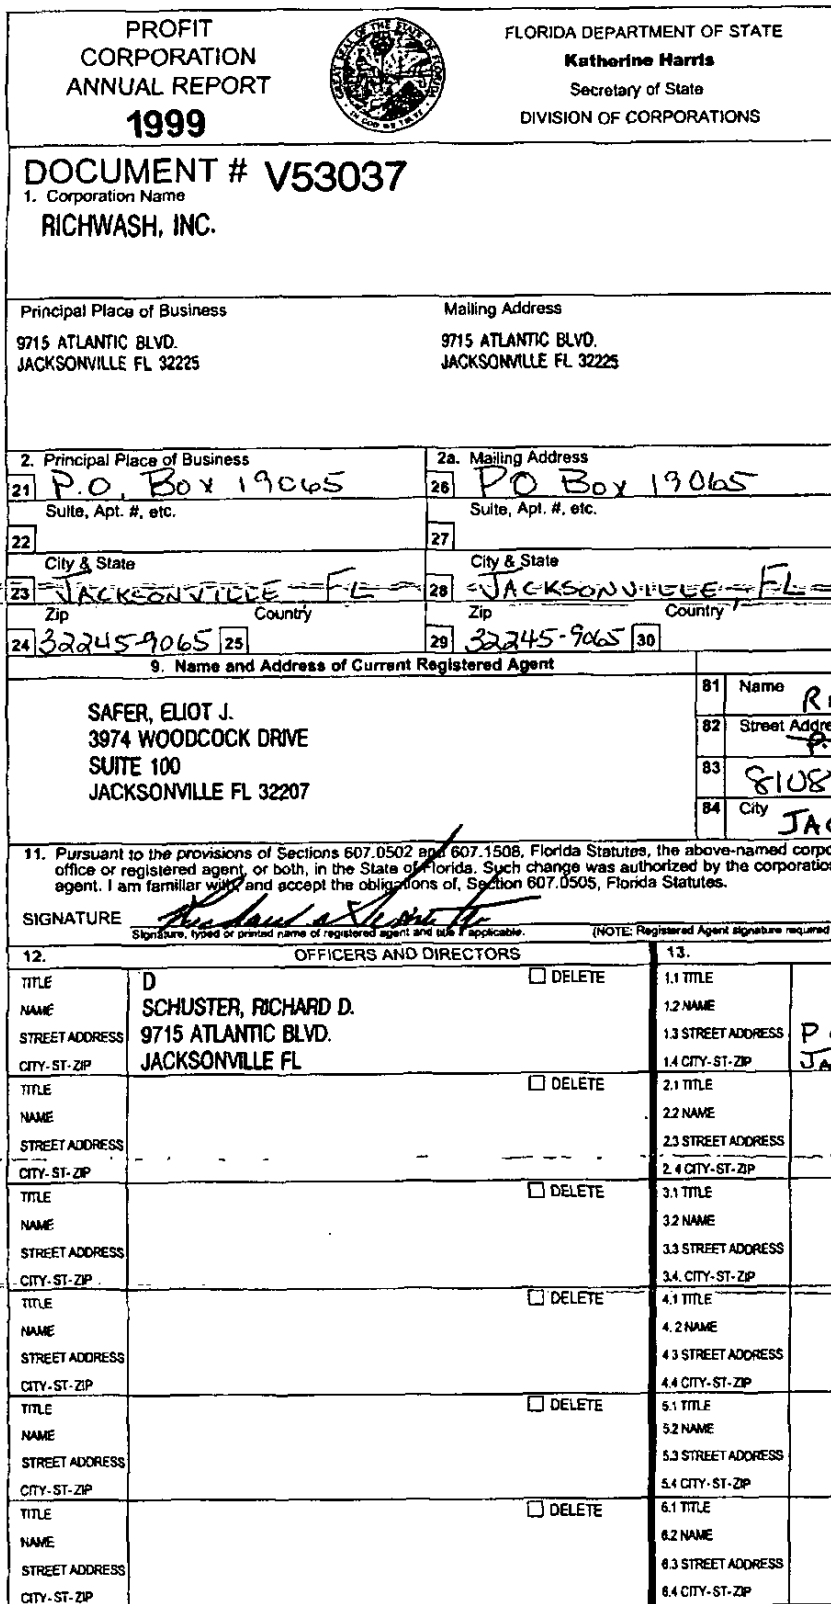 PROFIT
CORPORATION
ANNUAL REPORT
1999
FLORIDA DEPARTMENT OF STATE
Katherine Harris
Secretary of State
DIVISION OF CORPORATIONS
DOCUMENT # V53037
1. Corporation Name
RICHWASH, INC.
Principal Place of Business
9715 ATLANTIC BLVD.
JACKSONVILLE FL 32225
Mailing Address
9715 ATLANTIC BLVD.
JACKSONVILLE FL 32225
2. Principal Place of Business
21 P.O. Box 19065
Suite, Apt. #, etc.
22
City & State
23 JACKSONVILLE FL
Zip Country
24 32245-9065 25
2a. Mailing Address
26 PO Box 19065
Suite, Apt. #, etc.
27
City & State
28 JACKSONVILLE, FL
Zip Country
29 32245-9065 30
9. Name and Address of Current Registered Agent
SAFER, ELIOT J.
3974 WOODCOCK DRIVE
SUITE 100
JACKSONVILLE FL 32207
81 Name
82 Street Addre
83 8108
84 City JAC
11. Pursuant to the provisions of Sections 607.0502 and 607.1508, Florida Statutes, the above-named corpo
office or registered agent, or both, in the State of Florida. Such change was authorized by the corporation
agent. I am familiar with, and accept the obligations of, Section 607.0505, Florida Statutes.
SIGNATURE
Signature, typed or printed name of registered agent and title if applicable. (NOTE: Registered Agent signature required
12. OFFICERS AND DIRECTORS
TITLE D DELETE
NAME SCHUSTER, RICHARD D.
STREET ADDRESS 9715 ATLANTIC BLVD.
CITY-ST-ZIP JACKSONVILLE FL
TITLE DELETE
NAME
STREET ADDRESS
CITY-ST-ZIP
TITLE DELETE
NAME
STREET ADDRESS
CITY-ST-ZIP
TITLE DELETE
NAME
STREET ADDRESS
CITY-ST-ZIP
TITLE DELETE
NAME
STREET ADDRESS
CITY-ST-ZIP
TITLE DELETE
NAME
STREET ADDRESS
CITY-ST-ZIP
13.
1.1 TITLE
1.2 NAME
1.3 STREET ADDRESS P
1.4 CITY-ST-ZIP JA
2.1 TITLE
2.2 NAME
2.3 STREET ADDRESS
2.4 CITY-ST-ZIP
3.1 TITLE
3.2 NAME
3.3 STREET ADDRESS
3.4. CITY-ST-ZIP
4.1 TITLE
4.2 NAME
4.3 STREET ADDRESS
4.4 CITY-ST-ZIP
5.1 TITLE
5.2 NAME
5.3 STREET ADDRESS
5.4 CITY-ST-ZIP
6.1 TITLE
6.2 NAME
6.3 STREET ADDRESS
6.4 CITY-ST-ZIP